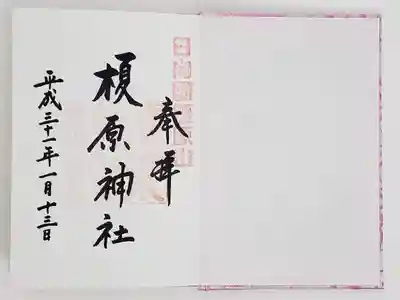 奉拝
榎原神社
平成三十一年一月十三日